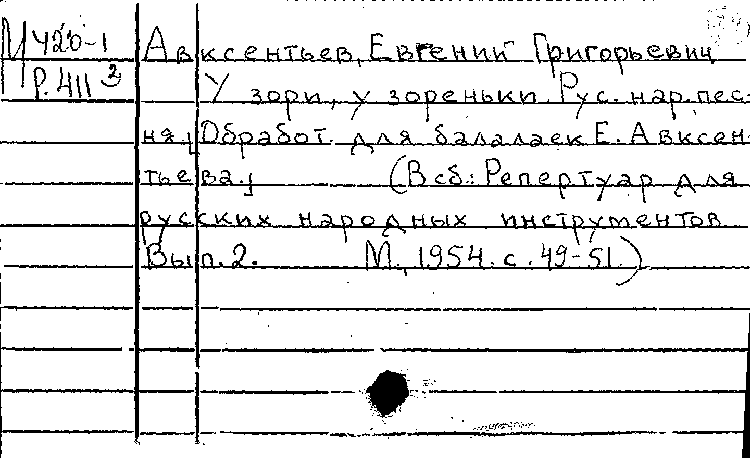 М 420-1
Р. 411³
Авксентьев, Евгений Григорьевич
У зори, у зореньки. Рус. нар. пес-
ня. [Обработ. для балалаек Е. Авксен-
тьева.]    (В сб.: Репертуар для
русских народных инструментов
Вып. 2.    М., 1954. с. 49-51.)